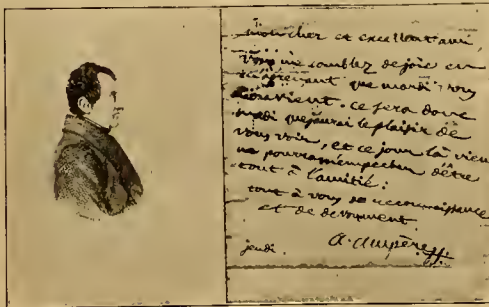 mon cher et excellent ami,
Vous me comblez de joie en
m'apprenant que mardi vous
convient. ce sera donc
mardi que j'aurai le plaisir de
vous voir, et ce jour là rien
ne pourra m'empecher d'être
tout à l'amitié.
tout à vous de reconnaissance
et de devouement
jeudi. A. Ampère